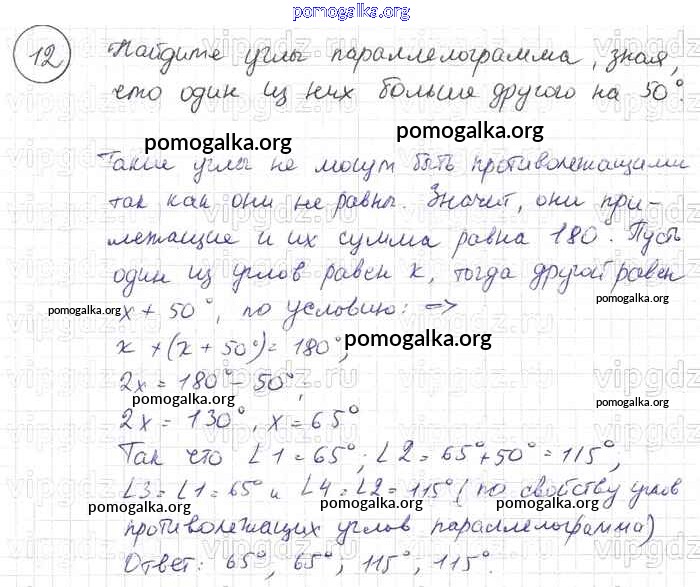 pomogalka.org
12 Найдите углы параллелограмма, зная,
что один из них больше другого на 50°.
pomogalka.org pomogalka.org
Такие углы не могут быть противолежащими
так как они не равны. Значит, они при-
лежащие и их сумма равна 180°. Пусть
один из углов равен x, тогда другой равен
pomogalka.org x + 50°, по условию: => pomogalka.org
x + (x + 50°) = 180°, pomogalka.org
2x = 180° - 50°;
pomogalka.org pomogalka.org
2x = 130°, x = 65°
Так что ∠1 = 65°; ∠2 = 65° + 50° = 115°,
∠3 = ∠1 = 65° и ∠4 = ∠2 = 115° (по свойству углов
pomogalka.org pomogalka.org
противолежащих углов параллелограмма)
Ответ: 65°, 65°, 115°, 115°.
pomogalka.org pomogalka.org